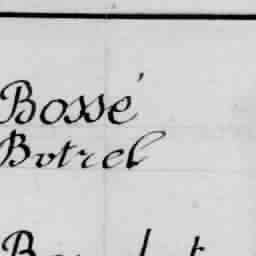 Bossé
Botrel